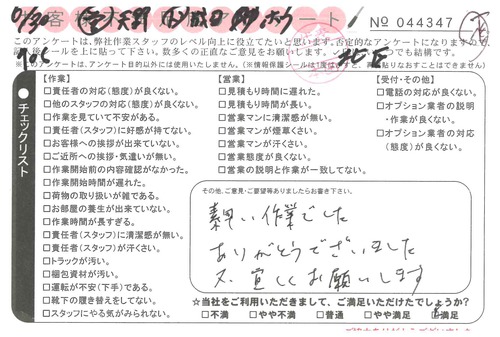 お客様アンケート
9/30
No 044347
このアンケートは、弊社作業スタッフのレベル向上に役立てたいと思います。否定的なアンケートになりますので
シールを上に貼って下さい。数多くの正直なご意見をお願いします。
【作業】
□責任者の対応(態度)が良くない。
□他のスタッフの対応(態度)が良くない。
□作業を見ていて不安がある。
□責任者(スタッフ)に好感が持てない。
□お客様への挨拶が出来ていない。
□ご近所への挨拶・気遣いが無い。
□作業開始前の内容確認がなかった。
□作業開始時間が遅れた。
□荷物の取り扱いが雑である。
□お部屋の養生が出来ていない。
□作業時間が長すぎる。
□責任者(スタッフ)に清潔感が無い。
□責任者(スタッフ)が汗くさい。
□トラックが汚い。
□梱包資材が汚い。
□運転が不安(下手)である。
□靴下の履き替えをしてない。
□スタッフにやる気がみられない。
【営業】
□見積もり時間に遅れた。
□見積もり時間が長い。
□営業マンに清潔感が無い。
□営業マンが煙草くさい。
□営業マンが汗くさい。
□営業態度が良くない。
□営業の説明と作業が一致してない。
【受付・その他】
□電話の対応が良くない。
□オプション業者の説明
・作業が良くない。
□オプション業者の対応
(態度)が良くない。
●チェックリスト
その他、ご意見・ご要望等ありましたらお書き下さい。
素早い作業でした
ありがとうございました
又、宜しくお願いします
☆当社をご利用いただきまして、ご満足いただけたでしょうか?
□不満 □やや不満 □普通 □やや満足 □満足